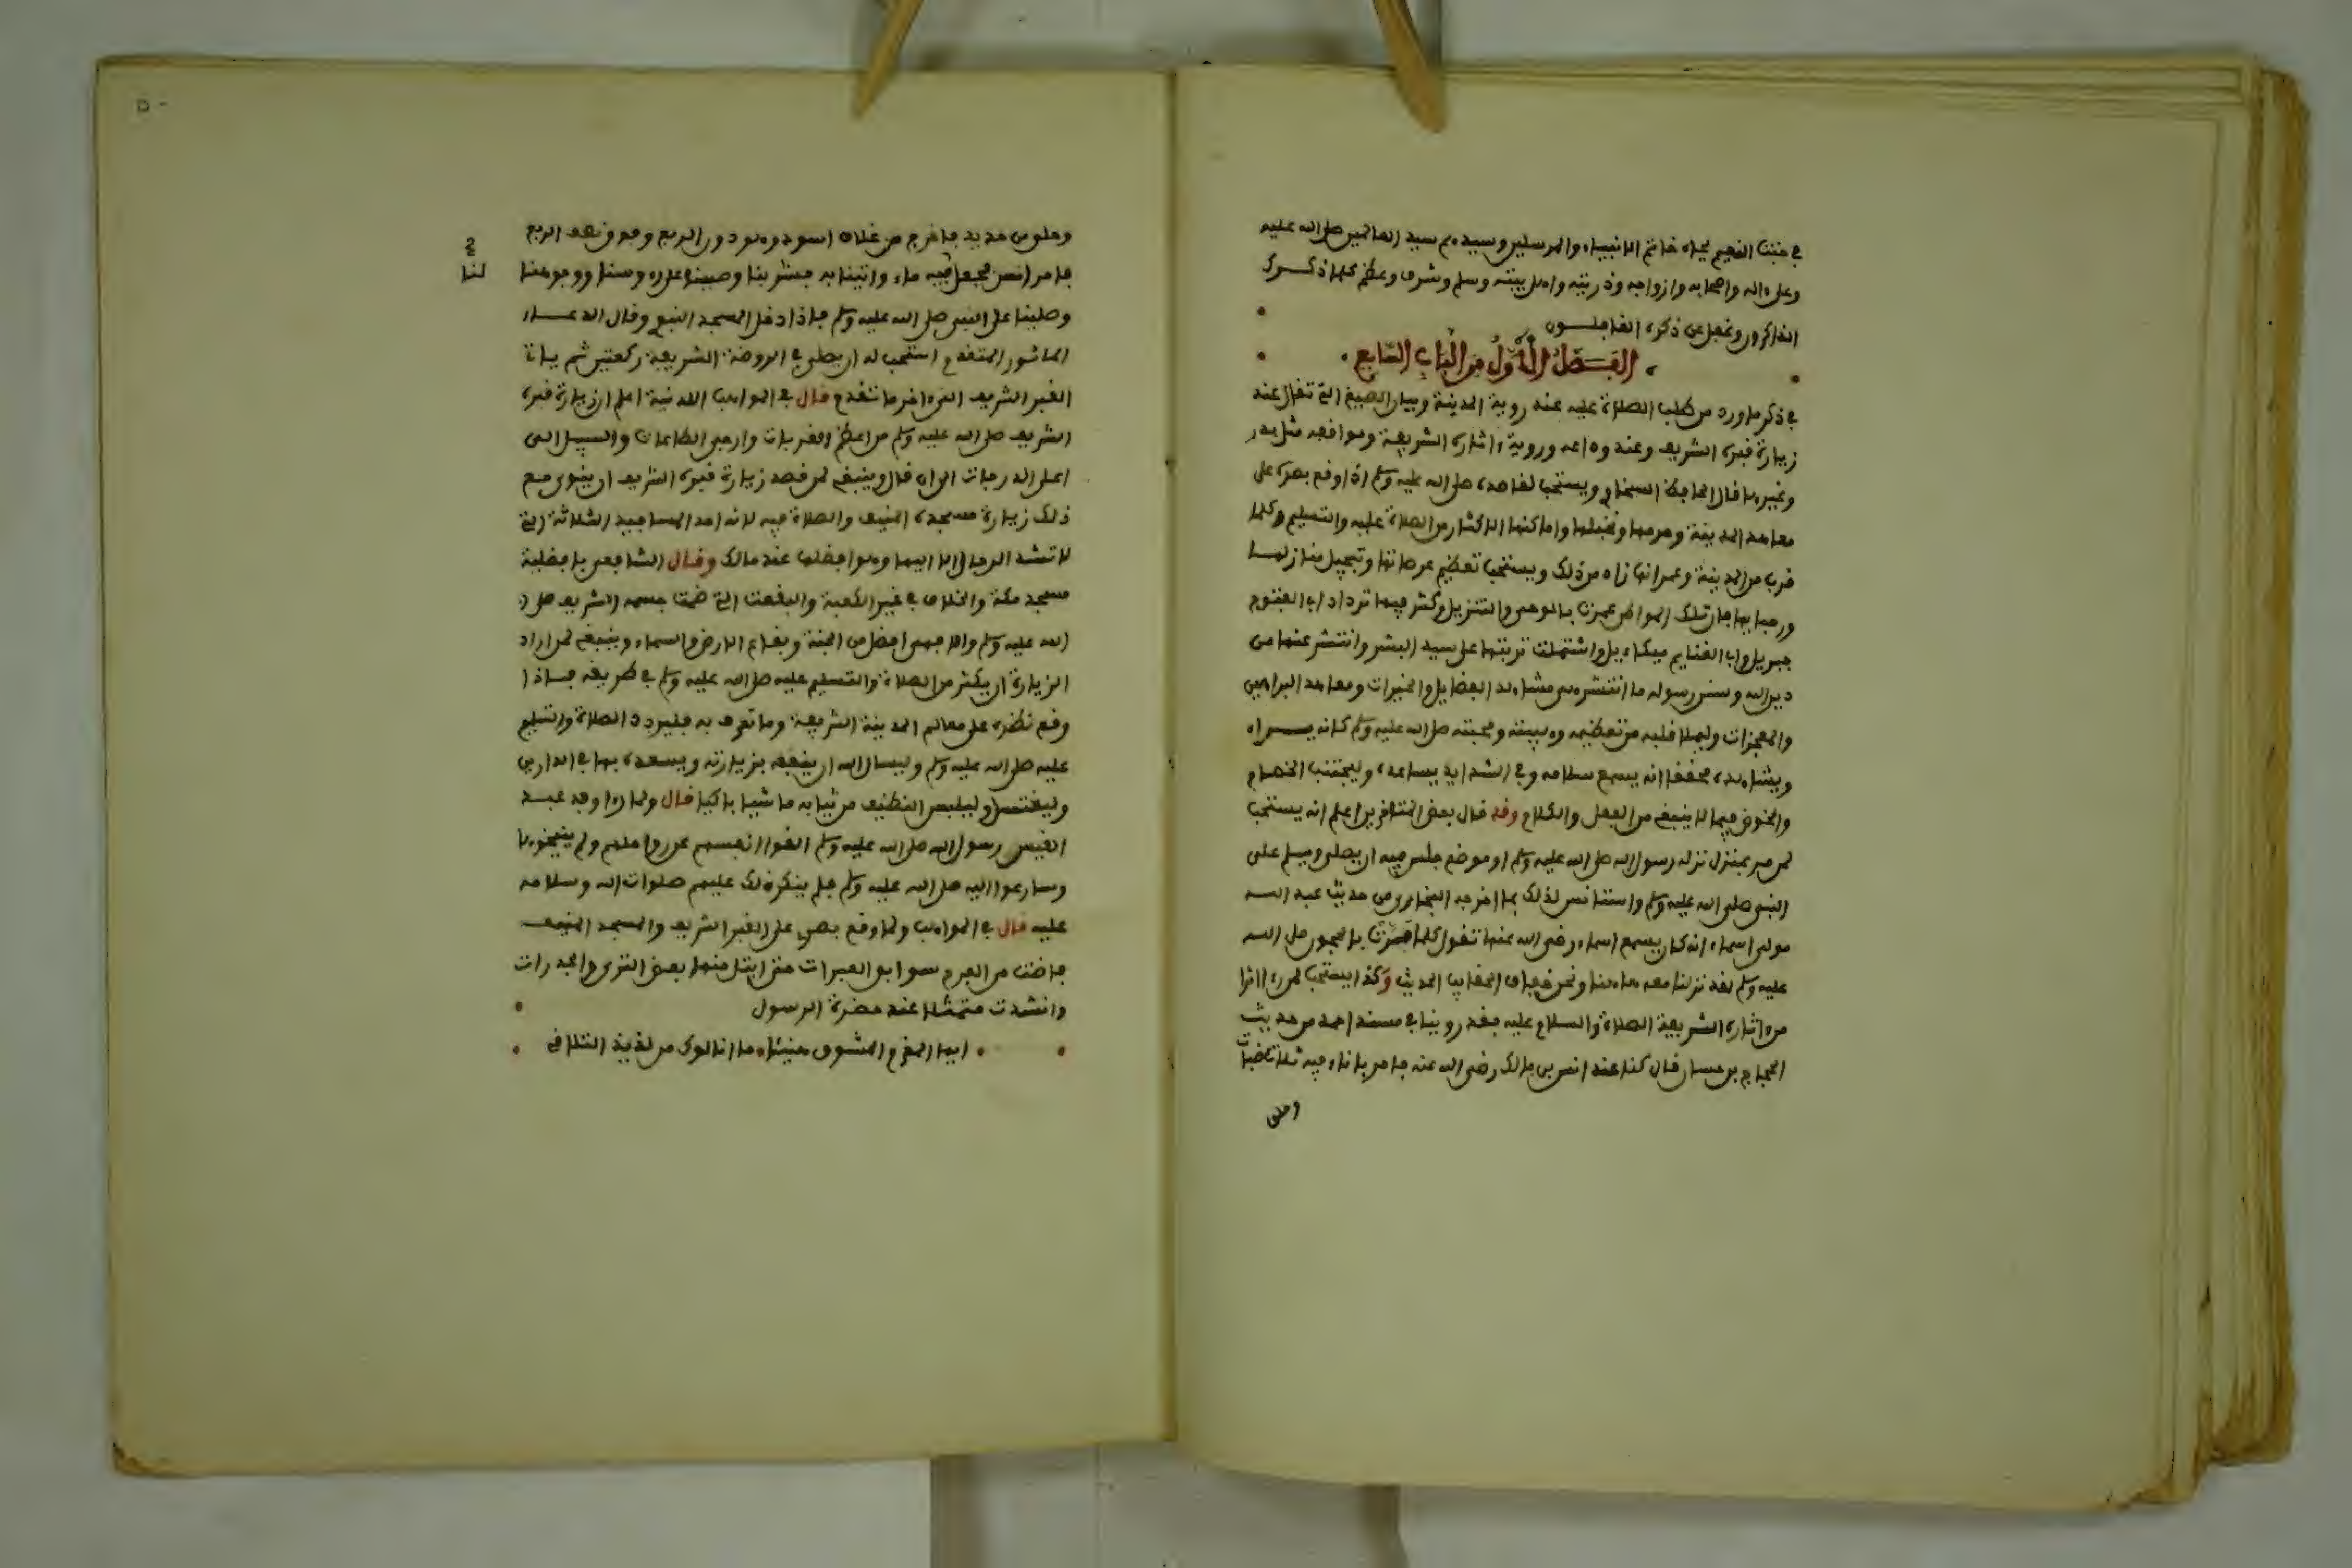 في جنت النعيم بجاه خاتم الانبياء والمرسلين وسيدهم سيد العالمين صلى الله عليه
وعلى ءاله واصحابه وازواجه وذريته واهل بيته وسلم وشرف وعظم كلما ذكرك
الذاكرون وغفل عن ذكره الغافلون
الفصل الأول من الباب السابع
في ذكر ما ورد من طلب الصلاة عليه عند روية المدينة وبيان الصيغ التي تقال عند
زيارة قبره الشريف وعند وداعه وروية ءاثاره الشريفة ومواقعه مثل بدر
وغيرها قال الحافظ السخاوي ويستحب لقاصده صلى الله عليه وسلم اذا وقع بصره على
معاهد المدينة وحرمها ونخيلها واماكنها الاكثار من الصلاة عليه والتسليم وكلما
قرب من المدينة وعمرانها زاد من ذلك ويستحب تعظيم عرصاتها وتبجيل منازلها
ورحابها فان تلك المواطن عمرت بالوحي والتنزيل وكثر فيها ترداد ابي الفتوح
جبريل وابي الغنايم ميكاءيل واشتملت تربتها على سيد البشر وانتشر عنها من
دين الله وسنن رسوله ما انتشر هي مشاهد الفضايل والخيرات ومعاهد البراهين
والمعجزات وليملا قلبه من تعظيمه وهيبته ومحبته صلى الله عليه وسلم كانه يراه
ويشاهده محققا انه يسمع سلامه وفي الشدايد يساعده وليجتنب الخصام
والخوض فيما لا ينبغي من الفعل والكلام وقد قال بعض المتاخرين اعلم انه يستحب
لمن مر بمنزل نزله رسول الله صلى الله عليه وسلم او موضع جلس فيه ان يصلي ويسلم على
النبي صلى الله عليه وسلم واستانس لذلك بما اخرجه البخاري من حديث عبد الله
مولى اسماء انه كان يسمع اسماء رضي الله عنها تقول كلما مرت بالحجون صلى الله
عليه وسلم لقد نزلنا معه هاهنا ونحن خفاف الحقايب الحديث وكذا يستحب لمن راا اثرا
من اثاره الشريفة الصلاة والسلام عليه فقد روينا في مسند احمد من حديث
الحجاج بن حسان قال كنا عند انس بن مالك رضي الله عنه فامر باناء فيه ثلاث ضبات
وحلق
وحلق من حديد فاخرج من غلاف اسود وهو دون الربع وفوق نصف الربع
فامر انس فجعل فيه ماء واتينا به فشربنا وصبينا على رءوسنا ووجوهنا
لنا
وصلينا على النبي صلى الله عليه وسلم فاذا دخل المسجد النبوي وقال الدعاء
الماثور المتقدم استحب له ان يصلي في الروضة الشريفة ركعتين ثم ياتي
القبر الشريف الى ءاخر ما تقدم قال في المواهب اللدنية اعلم ان زيارة قبره
الشريف صلى الله عليه وسلم من اعظم القربات وارجى الطاعات والسبيل الى
اعلى الدرجات الى ان قال وينبغي لمن قصد زيارة قبره الشريف ان ينوي مع
ذلك زيارة مسجده المنيف والصلاة فيه لانه احد المساجد الثلاثة التي
لا تشد الرحال الا اليها وهو افضلها عند مالك وقال الشافعي بافضلية
مسجد مكة والخلاف في غير الكعبة والبقعت التي ضمت جسمه الشريف صلى
الله عليه وسلم والا فهي افضل من الجنة وبقاع الارض والسماء وينبغي لمن اراد
الزيارة ان يكثر من الصلاة والتسليم عليه صلى الله عليه وسلم في طريقه فاذا
وقع نظره على معالم المدينة الشريفة وما تعرف به فليردد الصلاة والتسليم
عليه صلى الله عليه وسلم وليسال الله ان ينفعه بزيارته ويسعده بها في الدارين
وليغتسل وليلبس النظيف من ثيابه ماشيا باكيا قال ولما راا وفد عبد
القيس رسول الله صلى الله عليه وسلم القوا انفسهم عن رواحلهم ولم ينيخوها
وسارعوا اليه صلى الله عليه وسلم فلم ينكر ذلك عليهم صلوات الله وسلامه
عليه قال في المواهب ولما وقع بصري على القبر الشريف والمسجد المنيف
فاضت من الفرح سوابق العبرات حتى ابتل منها بعض الثرى والجدرات
وانشدت متمثلا عند حضرة الرسول
ايها المغرم المشوق هنيئا ما انالوك من لذيذ التلاق